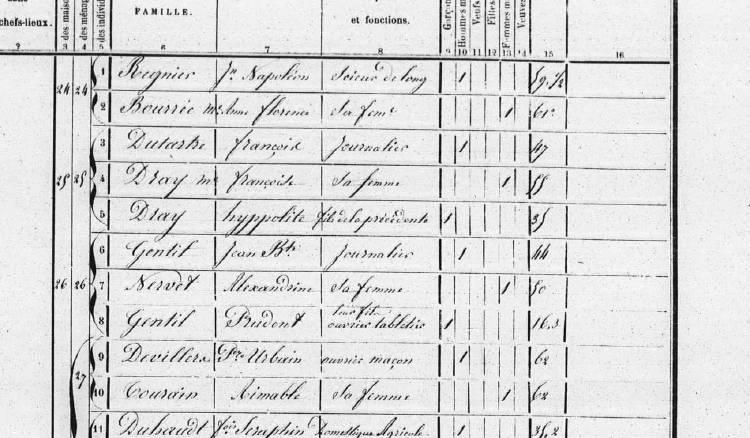 chefs-lieux. des maisons des ménages des individus FAMILLE. et fonctions. Garçons Hommes m Veufs Filles Femmes m Veuves
2 3 4 5 6 7 8 9 10 11 12 13 14 15 16
24 24 1 Regnier Jn Napoléon Scieur de long 1 59. 1/2
2 Bourrée me Anne florence Sa feme 1 61
3 Dutastre françois journalier 1 47
25 25 4 Dray me françoise Sa femme 1 55
5 Dray hyppolite fils de la précédente 1 35
6 Gentil Jean Bte Journalier 1 44
26 26 7 Nervet Alexandrine Sa femme 1 50
8 Gentil Prudent leur fils ouvrier tabletier 1 16.
27 9 Devillers Urbain ouvrier maçon 1 62
10 Tourain Aimable Sa femme 1 62
11 Duhaudt fois Seraphin Domestique Agricole 1 35,2